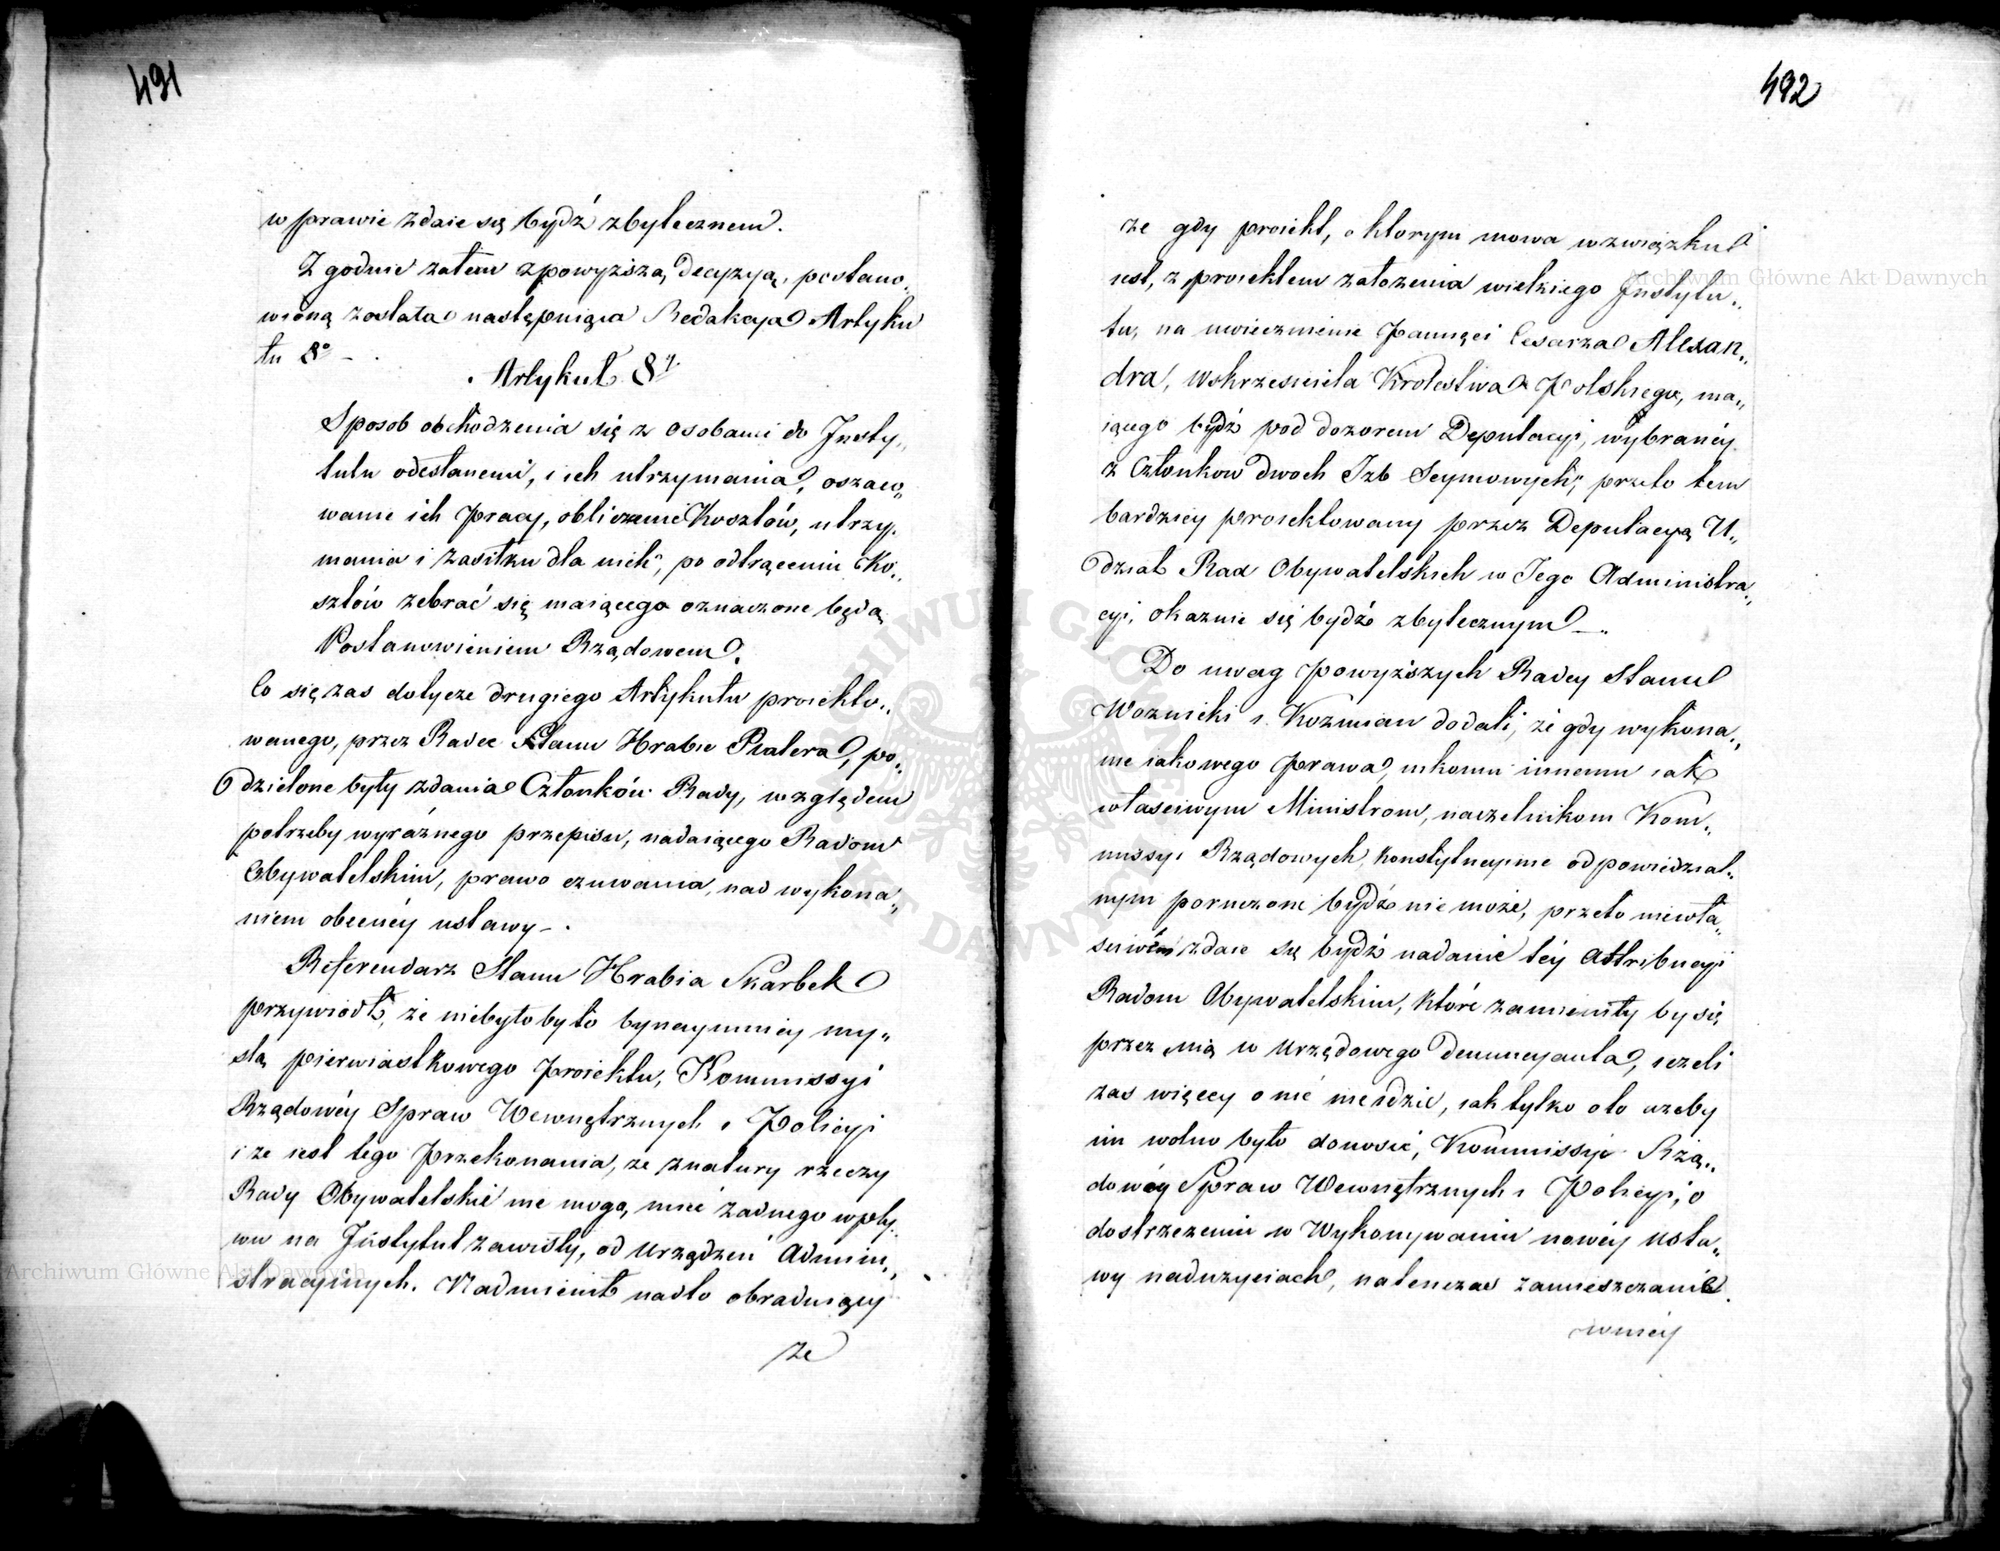 491
w prawie zdaie się bydź zbytecznem.
Zgodnie zatem z powyższą decyzyą, postano„
wioną została następuiąca Redakcya Artyku
łu 8º –
Artykuł 8y.
Sposob obchodzenia się z osobami do Insty„
tutu odesłanemi, i ich utrzymania, oszaco„
wanie ich Pracy, obliczenie Kosztów, utrzy„
mania i zasiłku dla nich, po odtrąceniu Ko„
sztów zebrać się maiącego oznaczone będą
Postanowieniem Rządowem.
Co się zas dotycze drugiego Artykułu proiekto„
wanego, przez Radcę Stanu Hrabie Platera, po„
dzielone były zdania Członków Rady, względem
potrzeby wyraźnego przepisu, nadaiącego Radom
Obywatelskim, prawo czuwania, nad wykona„
niem obecnéy ustawy –.
Referendarz Stanu Hrabia Skarbek
przywiodł, że niebyło by to bynaymniey my„
slą pierwiastkowego Proiektu, Kommissyi
Rządowéy Spraw Wewnętrznych i Policyi
i ze iest tego Przekonania, ze z natury rzeczy
Rady Obywatelskie nie mogą, mieć żadnego wpły„
wu na Instytut zawisły, od Urządzeń Admini„
stracyinych. Nadmienił nadto obraduiący
ze
492
ze gdy proiekt, o ktorym mowa w związku
iest, z proiektem załozenia wielkiego Instytu„
tu, na uwiecznienie Pamięci Cesarza Alexan„
dra, Wskrzesiciela Krolestwa Polskiego, ma„
iącego bydź pod dozorem Deputacyi, wybranéy
z Członkow dwoch Izb Seymowych, przeto tem
bardziey proiektowany przez Deputacyą U„
dział Rad Obywatelskich w Jego Administra„
cyi, okazuie się bydź zbytecznym –.
Do uwag Powyższych Radcy Stanu
Woznicki i Kozmian dodali, że gdy wykona„
nie iakowego Prawa, nikomu innemu iak
własciwym Ministrom, naczelnikom Kom„
missyi Rządowych, konstytucyinie odpowiedzial„
nym poruczone bydź nie może, przeto niewła„
sciwém zdaie się bydź nadanie téy Attribucyi
Radom Obywatelskim, które zamieniły by się,
przez nią w Urzędowego denuncyanta, iezeli
zas więcey o nic nie idzie, iak tylko oto azeby
im wolno było donosić, Kommissyi Rzą„
dowéy Spraw Wewnętrznych i Policyi, o
dostrzezeniu w Wykonywaniu nowéy usta„
wy naduzyciach, natenczas zamieszczanie
wniey
Archiwum Główne Akt Dawnych
Archiwum Główne Akt Dawnych
ARCHIWUM GŁÓWNE AKT DAWNYCH